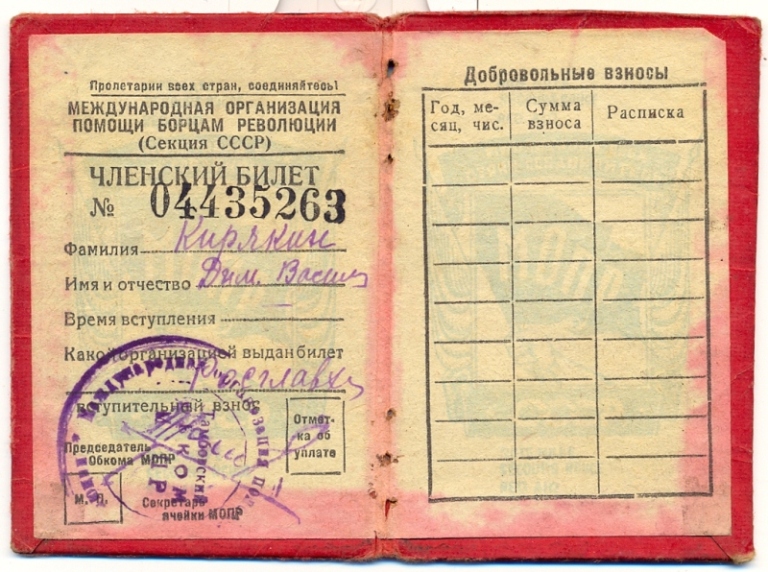 Пролетарии всех стран, соединяйтесь!
МЕЖДУНАРОДНАЯ ОРГАНИЗАЦИЯ
ПОМОЩИ БОРЦАМ РЕВОЛЮЦИИ
(Секция СССР)
ЧЛЕНСКИЙ БИЛЕТ
№ 04435263
Фамилия Кирякин
Имя и отчество Дим. Васил
Время вступления —
Какой организацией выдан билет
вступительный взнос
Отмет-
ка об
уплате
Председатель
Обкома МОПР
М. П.
Секретарь
ячейки МОПР
Тамбовский
Добровольные взносы
Год, ме-
сяц, чис.
Сумма
взноса
Расписка